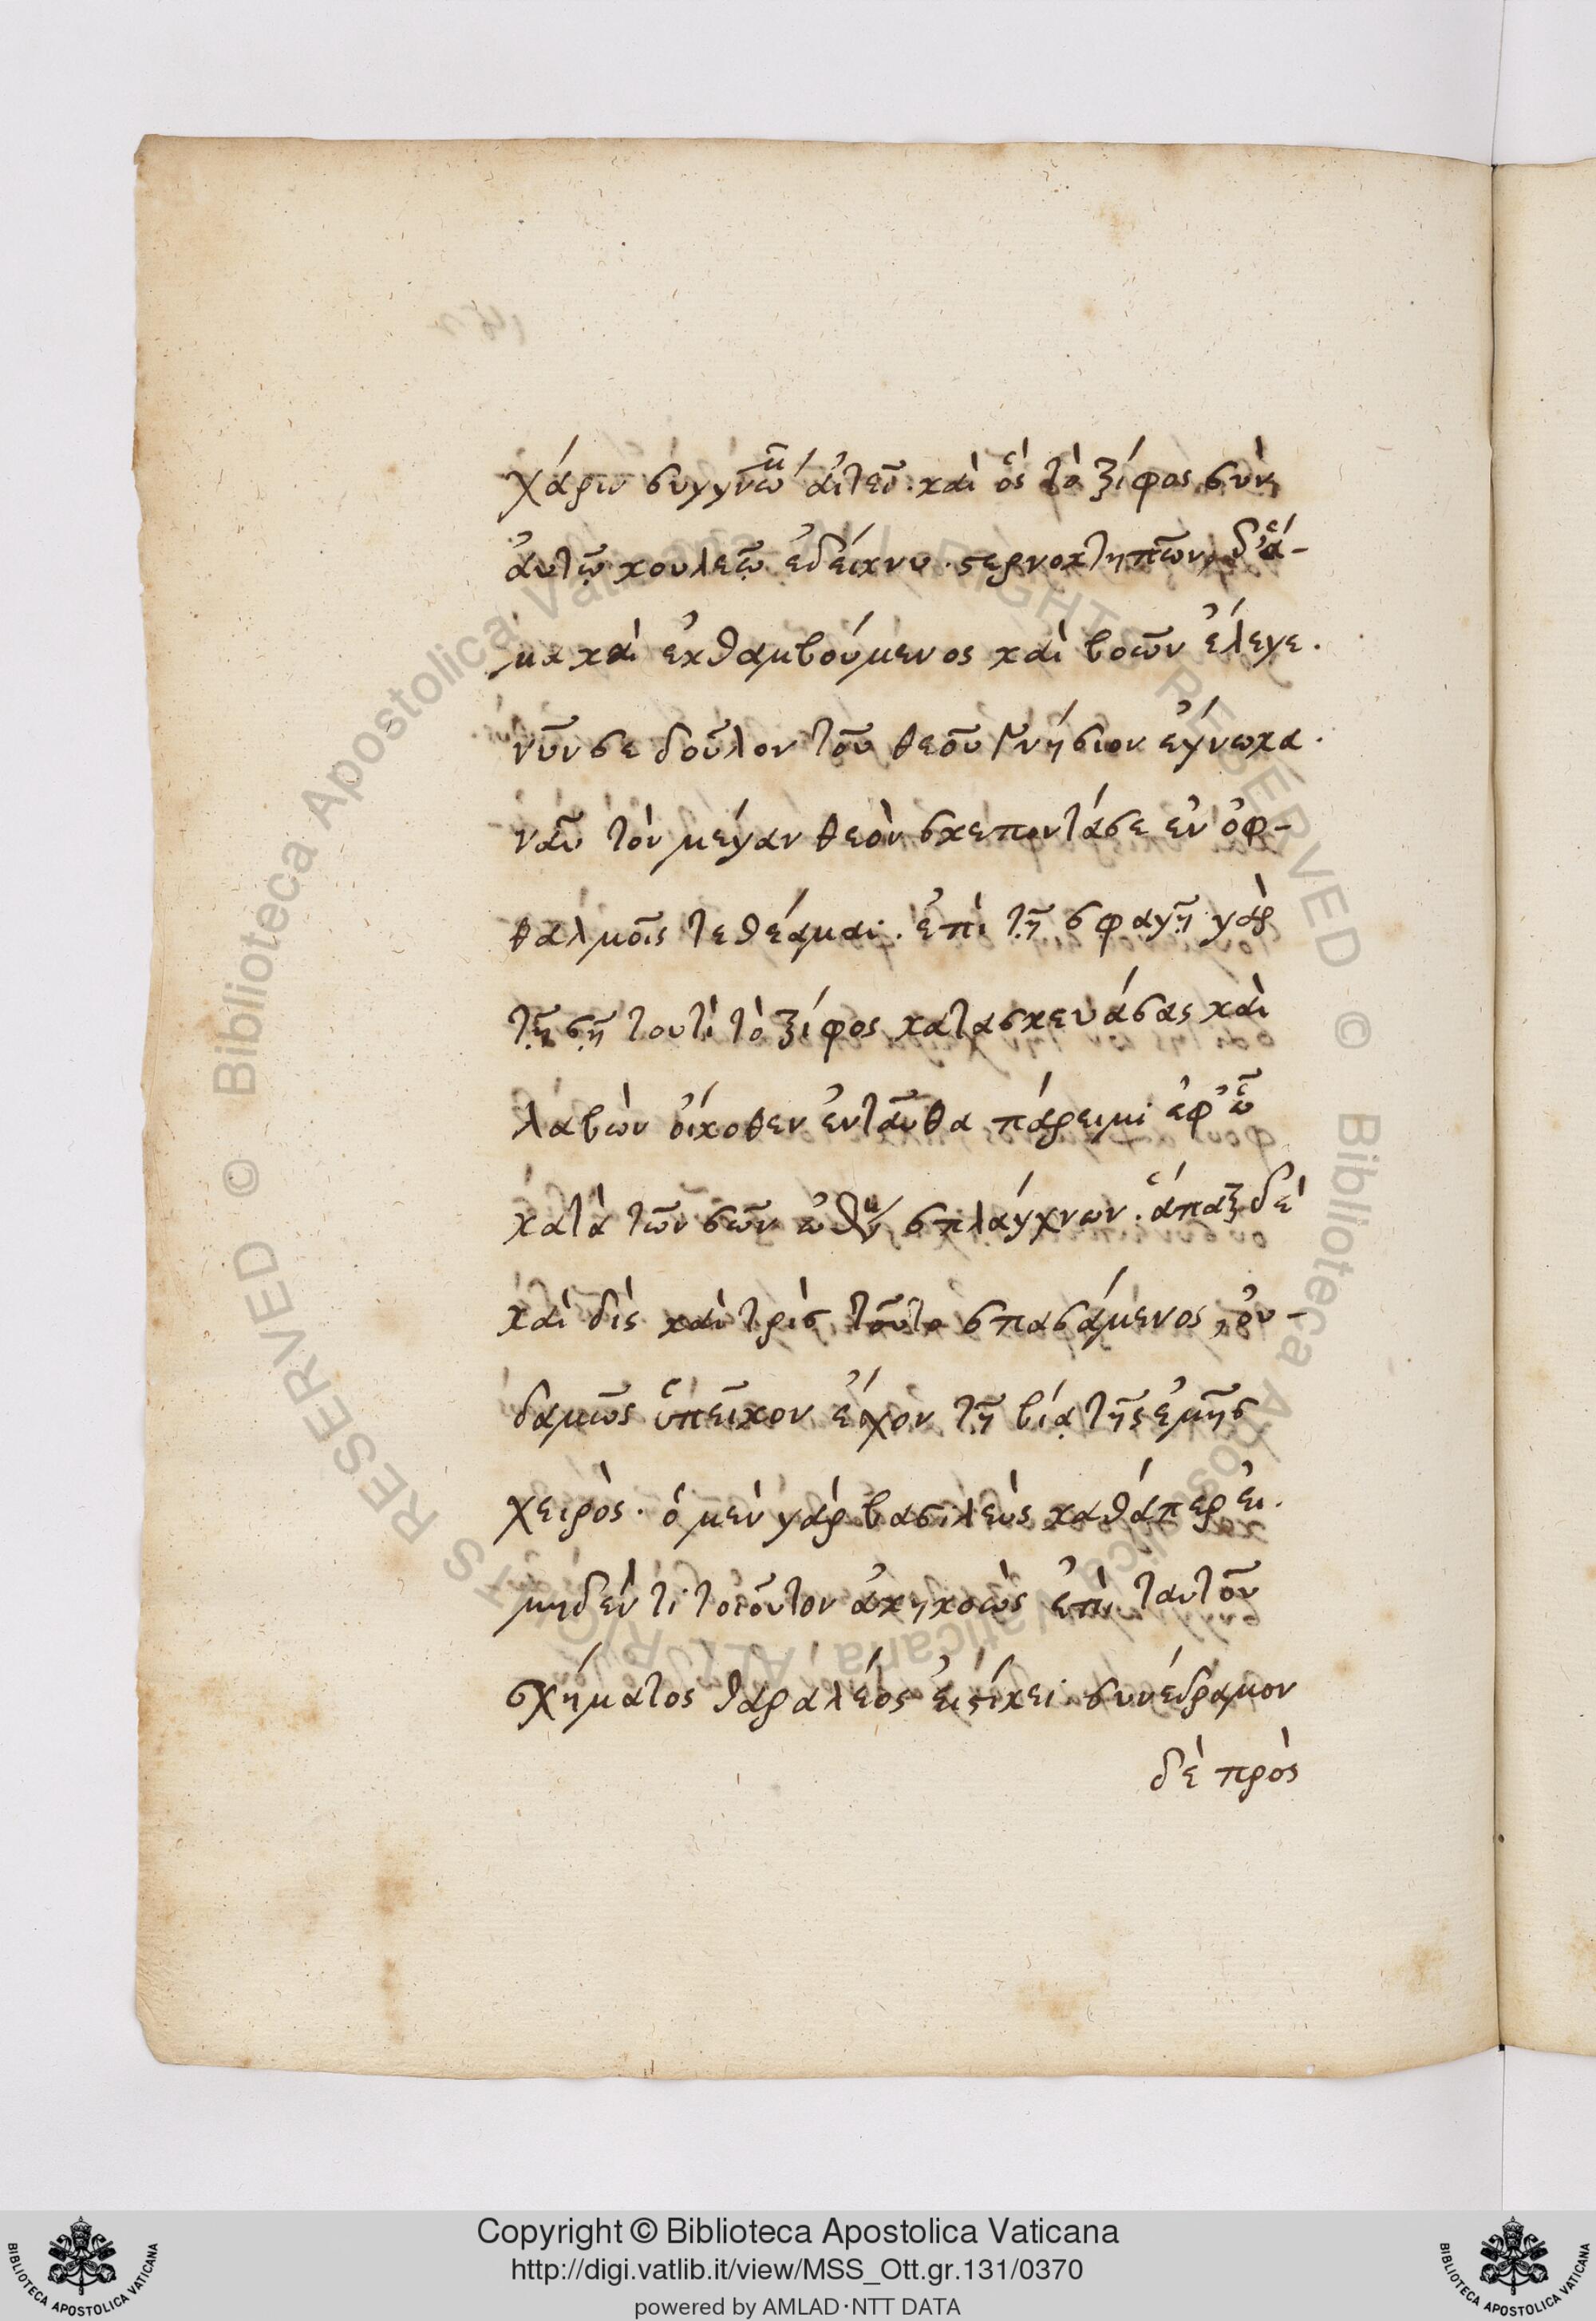 χάριν συγγνω᾿μ αἰτεῖ. καὶ ὃς τὸ ξίφος σὺν
ἀυτῷ κουλεῷ ἐδείκνυ. στερνοκτηπῶν, δ' ἅ-
μα καὶ ἐκθαμβούμενος καὶ βοῶν ἔλεγε.
νῦν σε δοῦλον τοῦ θεοῦ γνήσιον ἔγνωκα.
νῦν τὸν μέγαν θεὸν σκέποντάσε ἐν ὀφ-
θαλμοῖς τεθέαμαι. ἐπὶ τῇ σφαγῇ γὰρ
τῇ σῇ τουτὶ τὸ ξίφος κατασκευάσας καὶ
λαβὼν οἴκοθεν ἐνταῦθα πάρειμι ἐφ' ᾧ
κατὰ τῶν σῶν σπλάγχνων. ἅπαξ δὲ
καὶ δὶς καὶ τρὶς τοῦτο σπασάμενος, οὐ-
δαμῶς ὑπεῖκον εἶχον τῇ βίᾳ τῆς ἐμῆς
χειρὸς. ὁ μὲν γὰρ βασιλεὺς καθάπερ εἰ.
μηδέν τι τοιοῦτον ἀκηκοὼς ἐπὶ ταυτοῦ
σχήματος θαραλέος εἱστίκει. συνέδραμον
δὲ πρὸς
Copyright © Biblioteca Apostolica Vaticana
http://digi.vatlib.it/view/MSS_Ott.gr.131/0370
powered by AMLAD·NTT DATA